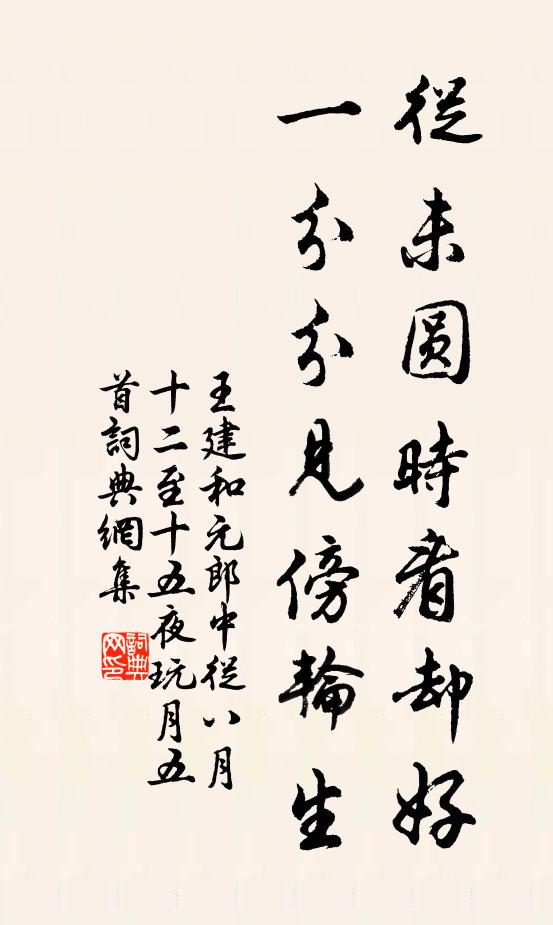 從未圓時看却好
一分分見傍輪生
王建和元郎中從八月
十二至十五夜玩月五
首詞典網集
詞典
网印